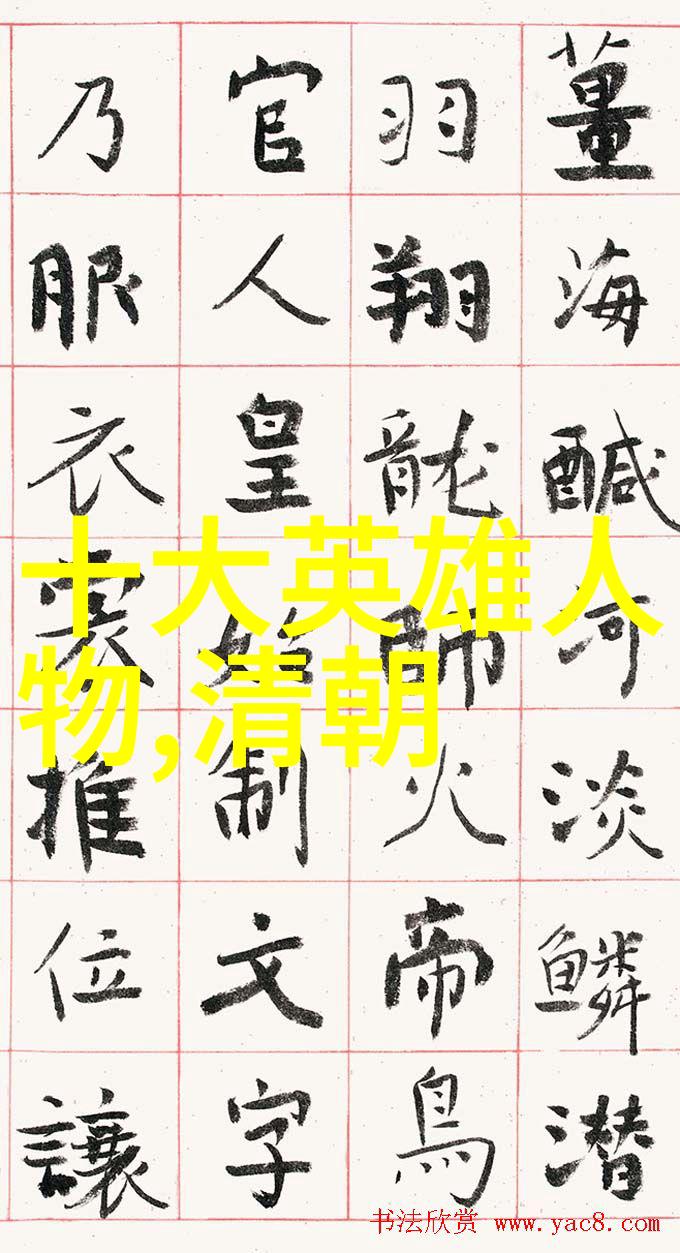 薑海醎河淡鱗潜
羽翔龍師火帝鳥
官人皇始制文字
乃服衣裳推位讓
十大英雄人
物,清朝
书法欣赏 www.yac8.com